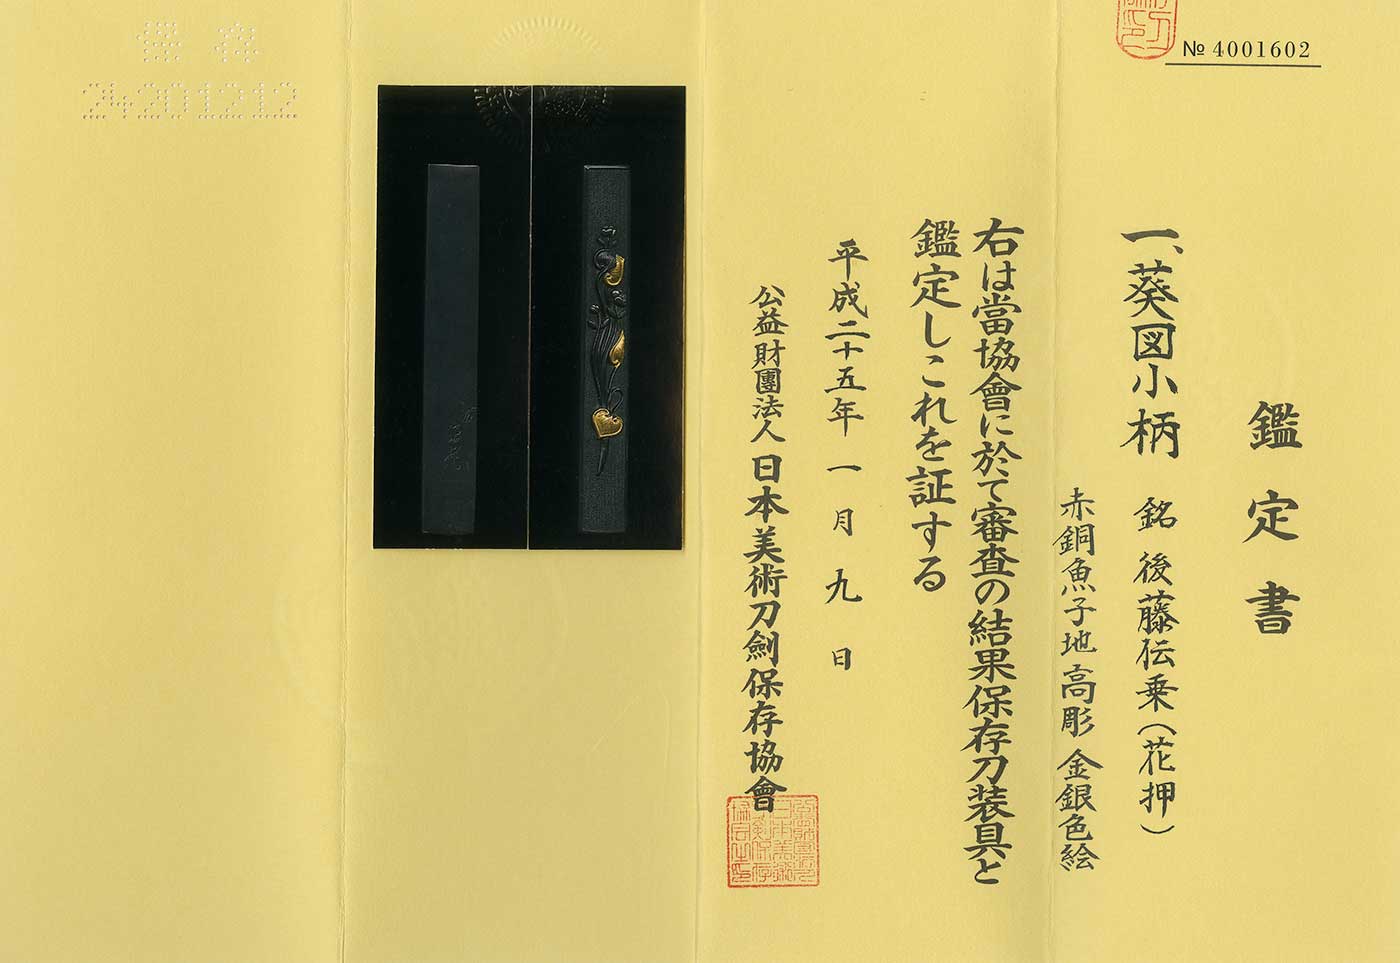 № 4001602
鑑定書
一、葵図小柄 銘 後藤伝乗(花押)
赤銅魚子地高彫金銀色絵
右は當協會に於て審査の結果保存刀装具と
鑑定しこれを証する
平成二十五年一月九日
公益財團法人日本美術刀劍保存協會
保存
24201212